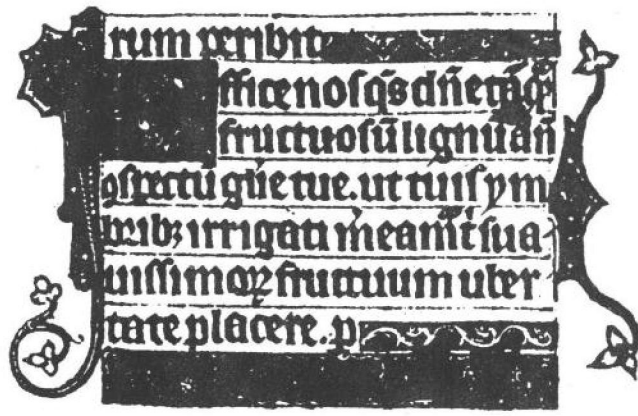 rum peribit
ffice nos q̄s dn̄e tāq̄
fructuosū lignū an̄
ospectū gl̄ie tue. ut tuis ym
bribꝫ irrigati meam̄ t̄ sua
uissimoꝝ fructuum uber
tate placere. p